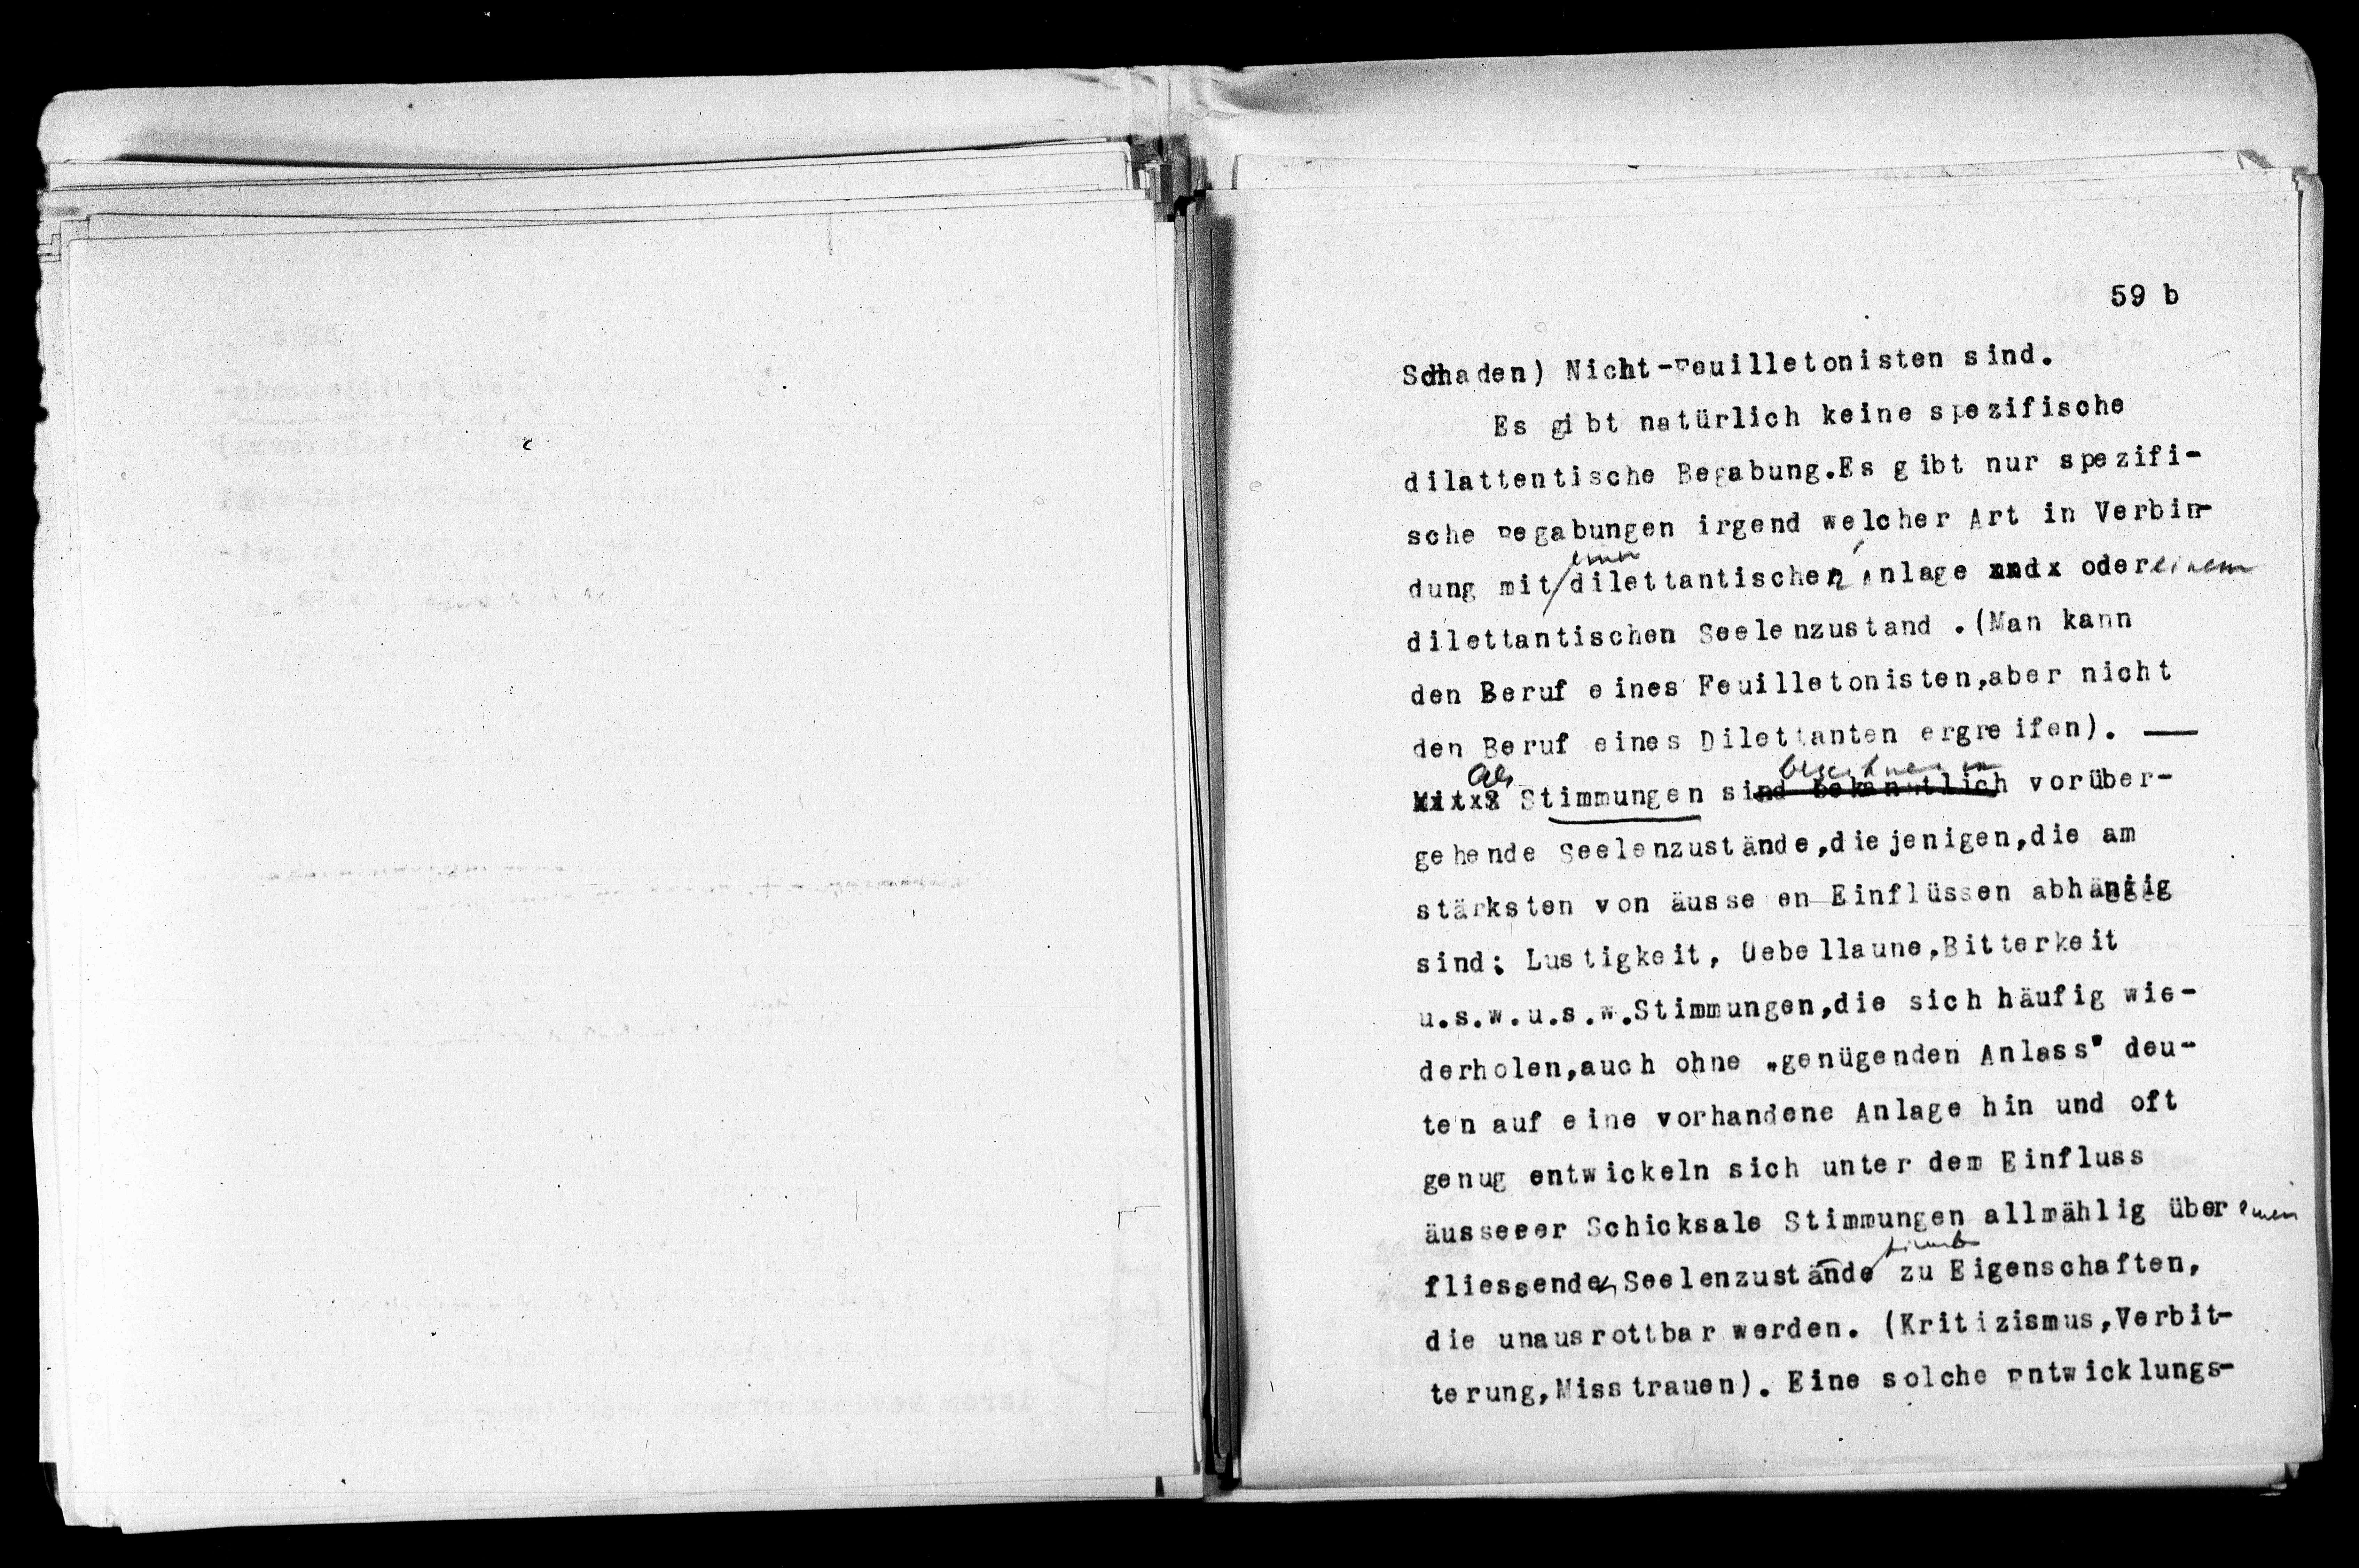 59 b
Schaden) Nicht-Feuilletonisten sind.
Es gibt natürlich keine spezifische
dilattentische Begabung.Es gibt nur spezifi-
sche Begabungen irgend welcher Art in Verbin-
einer
dung mit dilettantischen Anlage oder einem
dilettantischen Seelenzustand .(Man kann
den Beruf eines Feuilletonisten,aber nicht
den Beruf eines Dilettanten ergreifen). —
Als bezeichnen wir
Stimmungen sind bekanntlich vorüber-
gehende Seelenzustände,diejenigen,die am
stärksten von äusse en Einflüssen abhängig
sind: Lustigkeit, Uebellaune,Bitterkeit
u.s.w.u.s.w.Stimmungen,die sich häufig wie-
derholen,auch ohne „genügenden Anlass" deu-
ten auf eine vorhandene Anlage hin und oft
genug entwickeln sich unter dem Einfluss
äusserer Schicksale Stimmungen allmählig über einen
fliessenden Seelenzustände zu Eigenschaften,
die unausrottbar werden. (Kritizismus,Verbit-
terung,Misstrauen). Eine solche Entwicklungs-